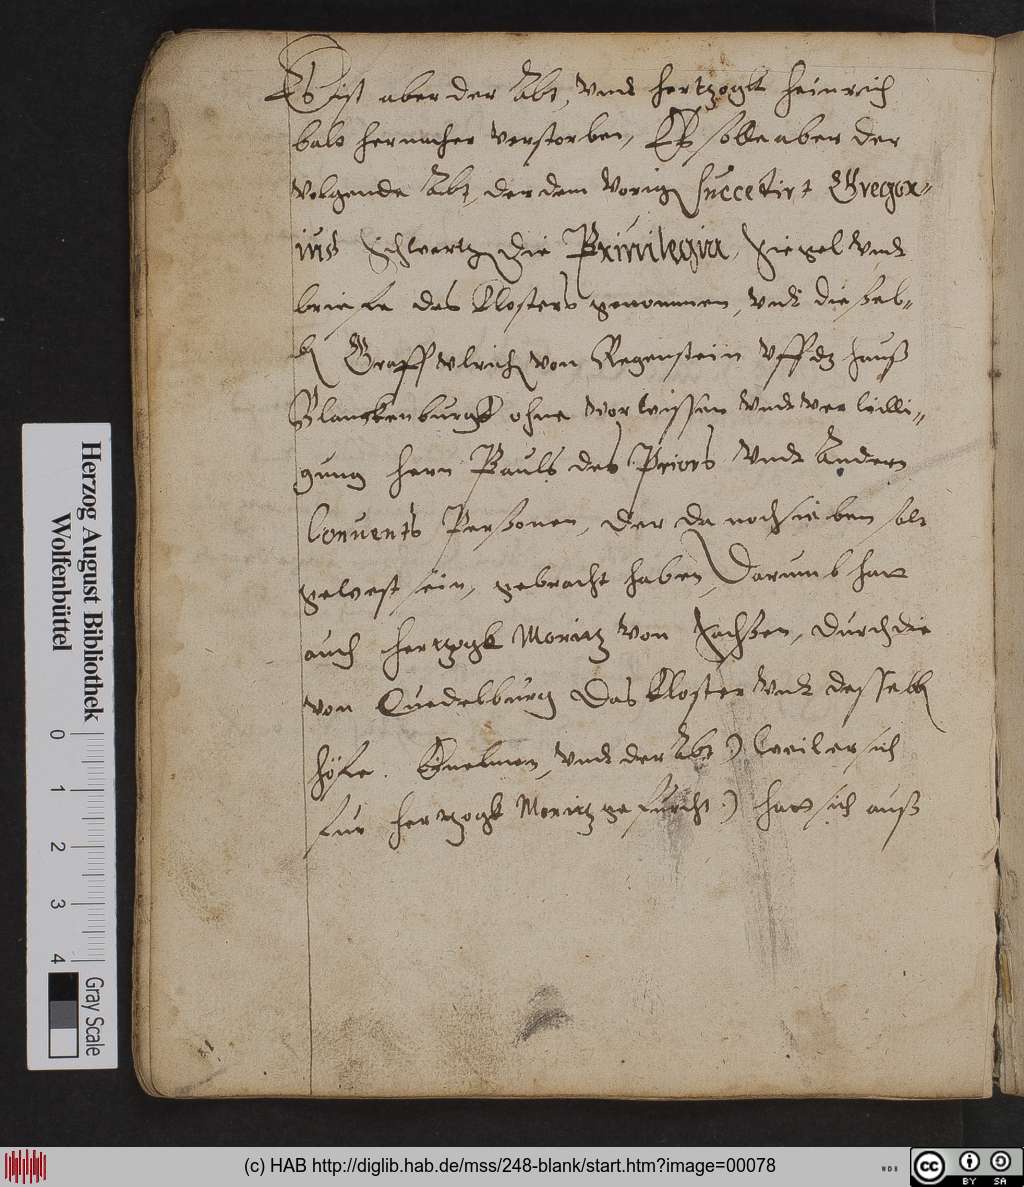 Es ist aber der Abt, vndt hertzogk heinrich
baldt hernacher verstorben, Es solle aber der
volgende Abt, der dem Vorig Succedirt Gregor-
ius Schwertz die Priuilegia, Siegel vndt
briefe des Closters genommen, vndt dieselb-
Graff vlrich von Regenstein vff dz hauß
Blanckenburgk ohne vorwissen vndt verwilli-
gung hern Pauls des Priors vndt Andern
Conuents Personen, der da noch sieben soln
gewest sein, gebracht haben, Darumb hatt
auch hertzogk Moritz von Sachßen, durch die
von Quedelburg das Closter vndt desselb
höfe. vndt der Abt) weil er sich
fur hertzogk Moritz gefurcht:) hatt sich auß
Herzog August Bibliothek
Wolfenbüttel
0 1 2 3 4
Gray Scale
(c) HAB http://diglib.hab.de/mss/248-blank/start.htm?image=00078
WDB
cc BY SA